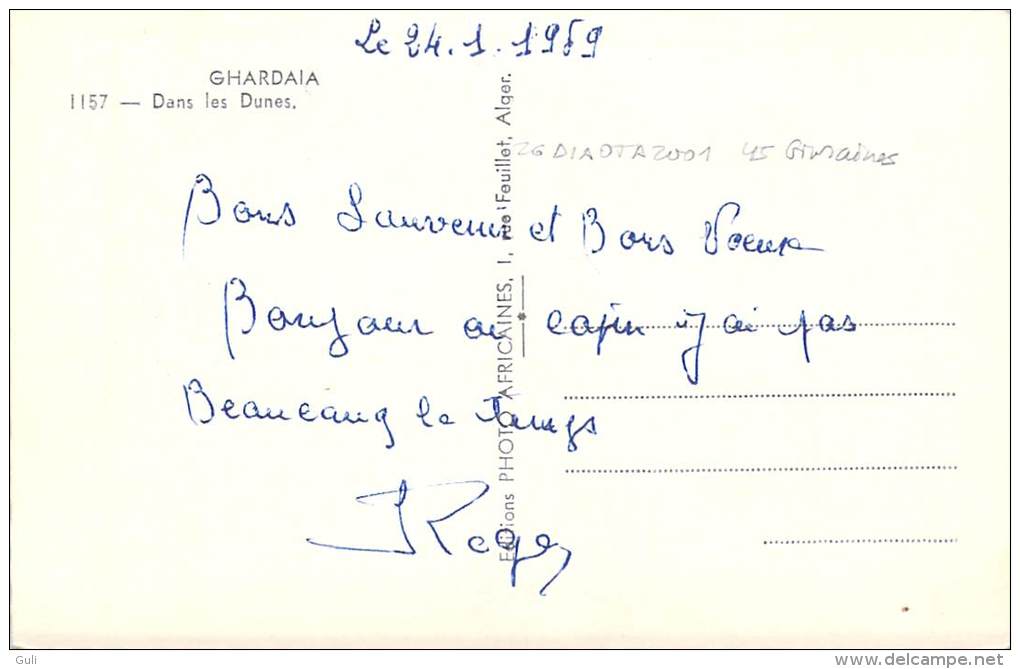 Le 24.1.1959
GHARDAIA
1157 — Dans les Dunes.
Editions PHOTO AFRICAINES, 1, rue Feuillet, Alger.
Bons Souvenir et Bons Voeux
Bonjour au copin j'ai pas
Beaucoup le Temps
Roger
Guli
www.delcampe.net